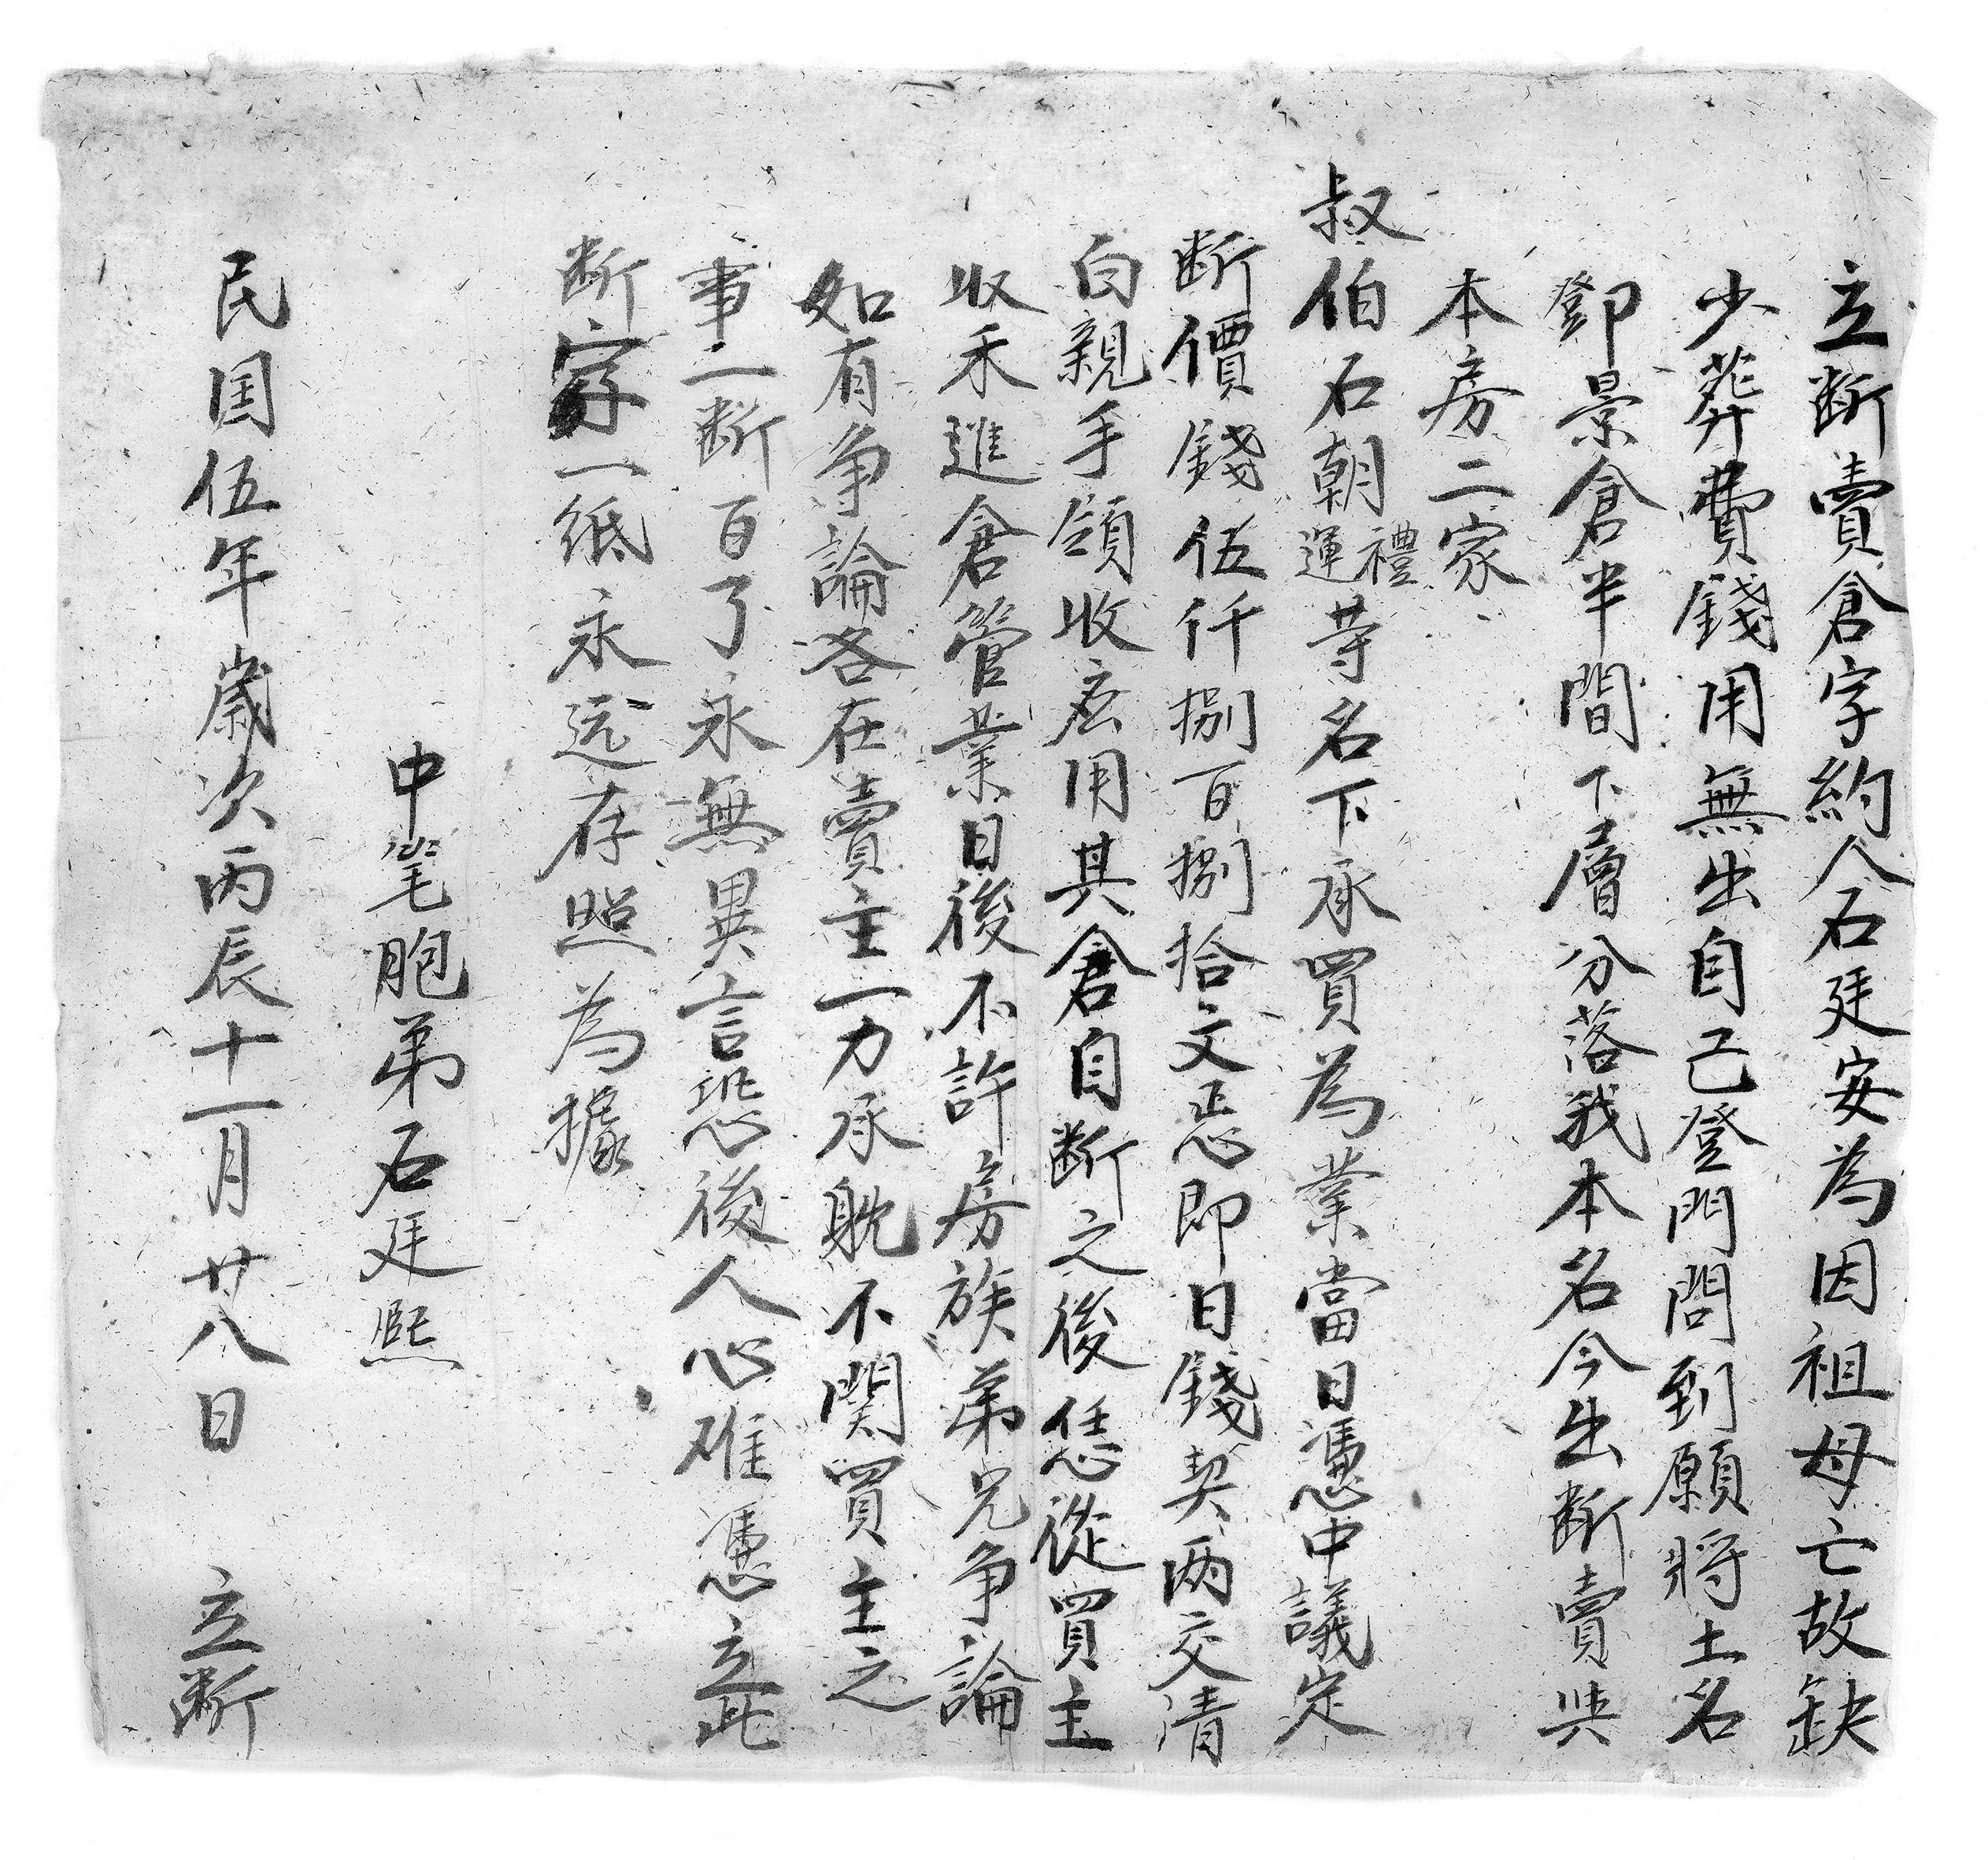 立断賣倉字約人石廷安為因祖母亡故缺
少葬費錢用無出自己登門問到願將土名
鄧景倉半間下層分落我本名今出断賣與
本房二家
叔伯石朝禮運等名下承買為業當日憑中議定
断價錢伍仟捌百捌拾文恁即日錢契两交清
白親手領收應用其倉自断之後恁從買主
收禾進倉管業日後不許房族弟兄争論
如有争論咎在賣主一力承躭不関買主之
事二断百了永無異言恐後人心难憑立此
断字一纸永远存照為據
中笔胞弟石廷熙
民国伍年歲次丙辰十一月廿八日 立断